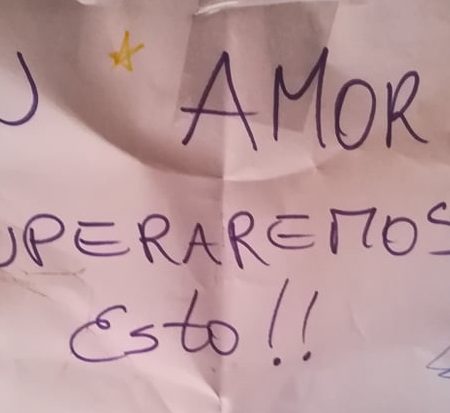 AMOR
UPERAREMOS
Esto!!